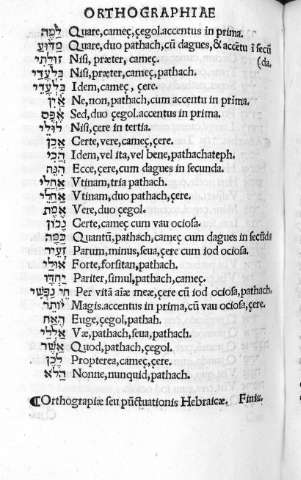 ORTHOGRAPHIAE
לָמָּה Quare, cameç, çegol. accentus in prima.
מַדּוּעַ Quare, duo pathach, cũ dagues, & accẽtu ĩ secũ
(da.
זוּלָתִי Nisi, præter, cameç.
בִּלְעֲדֵי Nisi, præter, cameç, pathach.
בִּלְעָדֵי Idem, cameç, çere.
אַיִן Ne, non, pathach, cum accentu in prima.
אֶפֶס Sed, duo çegol. accentus in prima.
לוּלֵי Nisi, çere in tertia.
אָכֵן Certe, vere, cameç, çere.
הֲכִי Idem, vel ita, vel bene, pathachateph.
הִנֵּה Ecce, çere, cum dagues in secunda.
אַחֲלַי Vtinam, tria pathach.
אַחֲלֵי Vtinam, duo pathach, çere.
אֱמֶת Vere, duo çegol.
נָכוֹן Certe, cameç cum vau ociosa.
כַּמָּה Quantũ, pathach, cameç cum dagues in secũda
זְעֵיר Parum, minus, seua, çere cum iod ociosa.
אוּלַי Forte, forsitan, pathach.
יַחְדָּו Pariter, simul, pathach, cameç.
חֵי נַפְשִׁי Per vitã aĩæ meæ, çere cũ iod ociosa, pathach.
יוֹתֵר Magis. accentus in prima, cũ vau ociosa, çere.
הֶאַח Euge, çegol, pathah.
אַלְלַי Væ, pathach, seua, pathach.
אֲשֶׁר Quod, pathach, çegol.
לָכֵן Propterea, cameç, çere.
הֲלֹא Nonne, nunquid, pathach.
¶Orthograpiæ seu pũctuationis Hebraicæ. Finis.